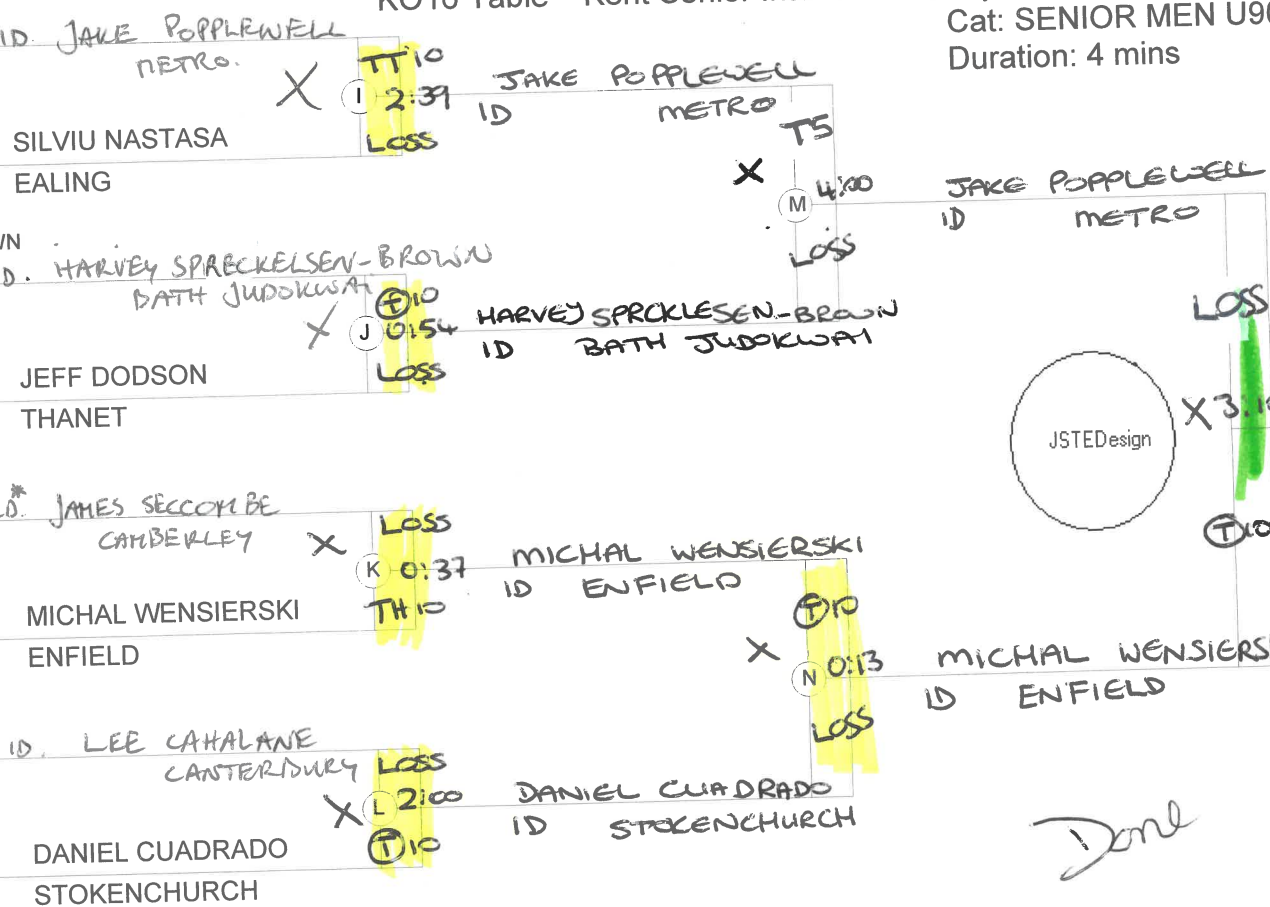 Cat: SENIOR MEN
Duration: 4 mins
ID JAKE POPPLEWELL
METRO.
TT 10
I 2:39
LOSS
SILVIU NASTASA
EALING
JAKE POPPLEWELL
ID METRO
T5
M 4:00
LOSS
JAKE POPPLEWELL
ID METRO
HARVEY SPRECKELSEN-BROWN
BATH JUDOKWAI
T 10
J 0:54
LOSS
JEFF DODSON
THANET
HARVEY SPRCKLESEN-BROWN
ID BATH JUDOKWAI
LOSS
JSTEDesign
T 10
JAMES SECCOMBE
CAMBERLEY
LOSS
K 0:37
TH 10
MICHAL WENSIERSKI
ENFIELD
MICHAL WENSIERSKI
ID ENFIELD
T 10
N 0:13
LOSS
MICHAL
ID ENFIELD
ID. LEE CAHALANE
CANTERBURY
LOSS
L 2:00
T 10
DANIEL CUADRADO
STOKENCHURCH
DANIEL CUADRADO
ID STOKENCHURCH
Done